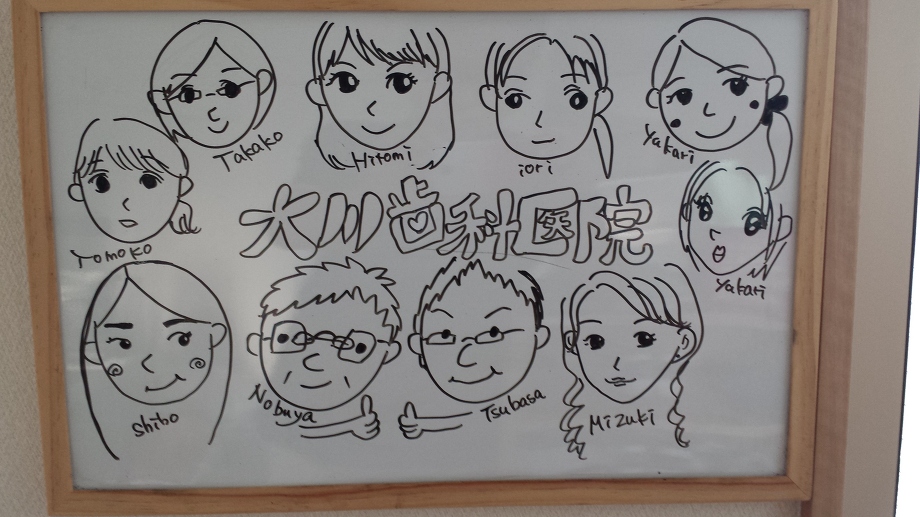 Takako
Hitomi
iori
Yakari
Tomoko
大川歯科医院
Yakari
Shiho
Nobuya
Tsubasa
Mizuki